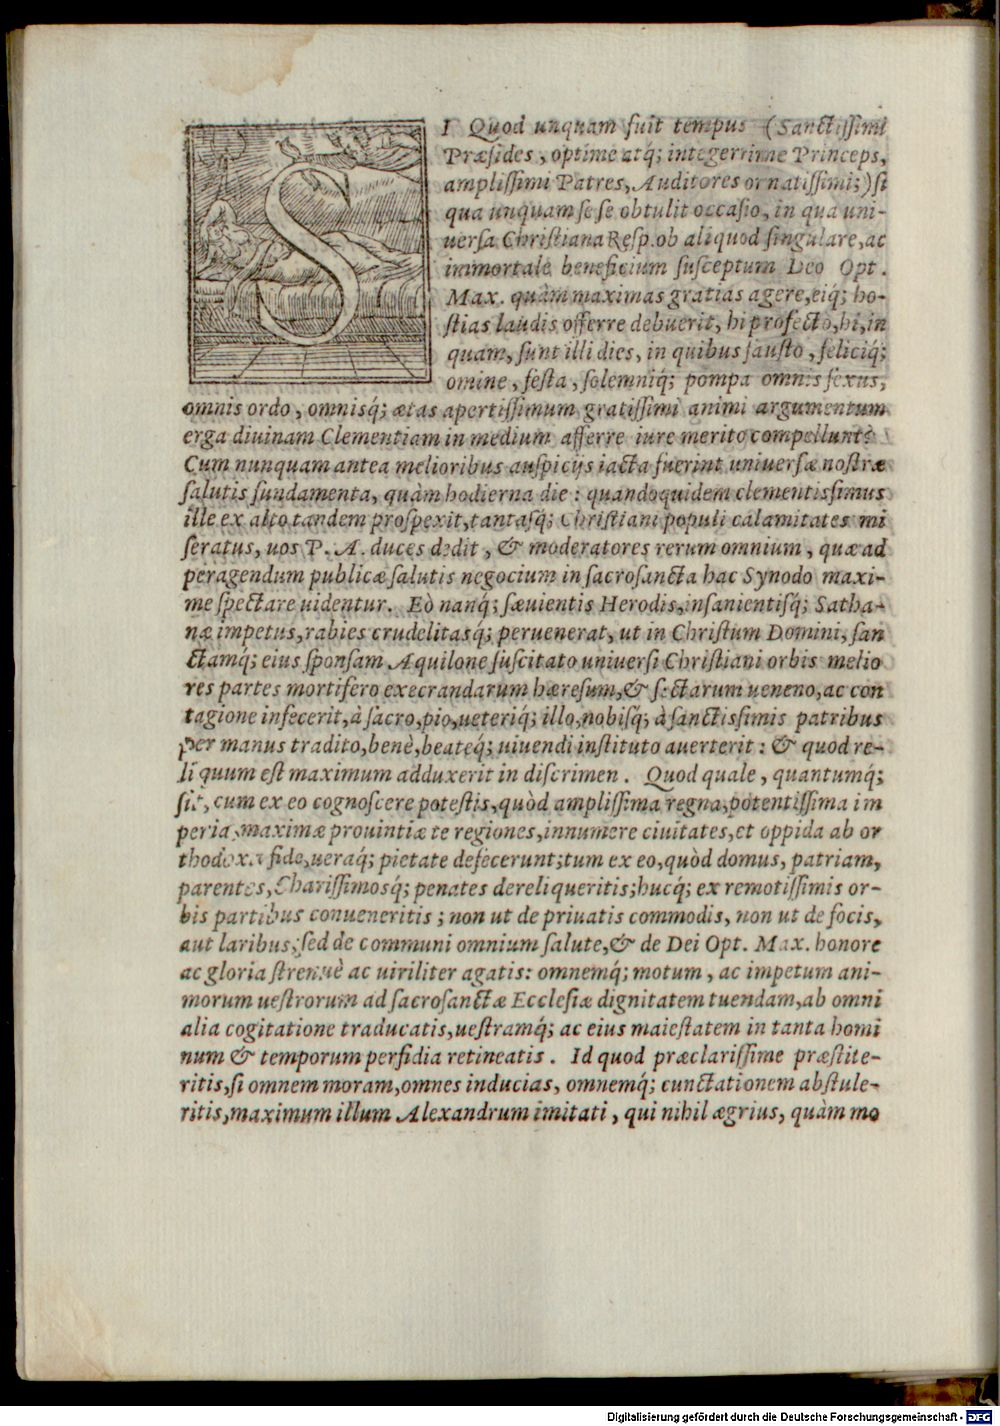 SI Quod unquam fuit tempus (Sanctissimi
Præsides, optime atq́; integerrime Princeps,
amplissimi Patres, Auditores ornatissimi;) si
qua unquam se se obtulit occasio, in qua uni-
uersa Christiana Resp. ob aliquod singulare, ac
immortale beneficium susceptum Deo Opt.
Max. quàm maximas gratias agere, eiq́; ho-
stias laudis offerre debuerit, hi profectò, hi, in
quam, sunt illi dies, in quibus fausto, feliciq́;
omine, festa, solemniq́; pompa omnis sexus,
omnis ordo, omnisq́; ætas apertissimum gratissimi animi argumentum
erga diuinam Clementiam in medium afferre iure merito compellunt?
Cum nunquam antea melioribus auspicijs iacta fuerint uniuersæ nostræ
salutis fundamenta, quàm hodierna die: quandoquidem clementissimus
ille ex alto tandem prospexit, tantasq́; Christiani populi calamitates mi
seratus, uos P. A. duces dedit, & moderatores rerum omnium, quæ ad
peragendum publicæ salutis negocium in sacrosancta hac Synodo maxi-
me spectare uidentur. Eò nanq́; sæuientis Herodis, insanientisq́; Satha-
næ impetus, rabies crudelitasq́; peruenerat, ut in Christum Domini, san
ctamq́; eius sponsam Aquilone suscitato uniuersi Christiani orbis melio
res partes mortifero execrandarum hæresum, & sectarum ueneno, ac con
tagione infecerit, à sacro, pio, ueteriq́; illo, nobisq́; à sanctissimis patribus
per manus tradito, benè, beateq́; uiuendi instituto auerterit: & quod re-
liquum est maximum adduxerit in discrimen. Quod quale, quantumq́;
sit, cum ex eo cognoscere potestis, quòd amplissima regna, potentissima im
peria, maximæ prouintiæ te regiones, innumere ciuitates, et oppida ab or
thodoxa fide, ueraq́; pietate defecerunt; tum ex eo, quòd domus, patriam,
parentes, Charissimosq́; penates dereliqueritis; hucq́; ex remotissimis or-
bis partibus conueneritis; non ut de priuatis commodis, non ut de focis,
aut laribus, sed de communi omnium salute, & de Dei Opt. Max. honore
ac gloria strenuè ac uiriliter agatis: omnemq́; motum, ac impetum ani-
morum uestrorum ad sacrosanctæ Ecclesiæ dignitatem tuendam, ab omni
alia cogitatione traducatis, uestramq́; ac eius maiestatem in tanta homi
num & temporum perfidia retineatis. Id quod præclarissime præstite-
ritis, si omnem moram, omnes inducias, omnemq́; cunctationem abstule-
ritis, maximum illum Alexandrum imitati, qui nihil ægrius, quàm mo
Digitalisierung gefördert durch die Deutsche Forschungsgemeinschaft - DFG